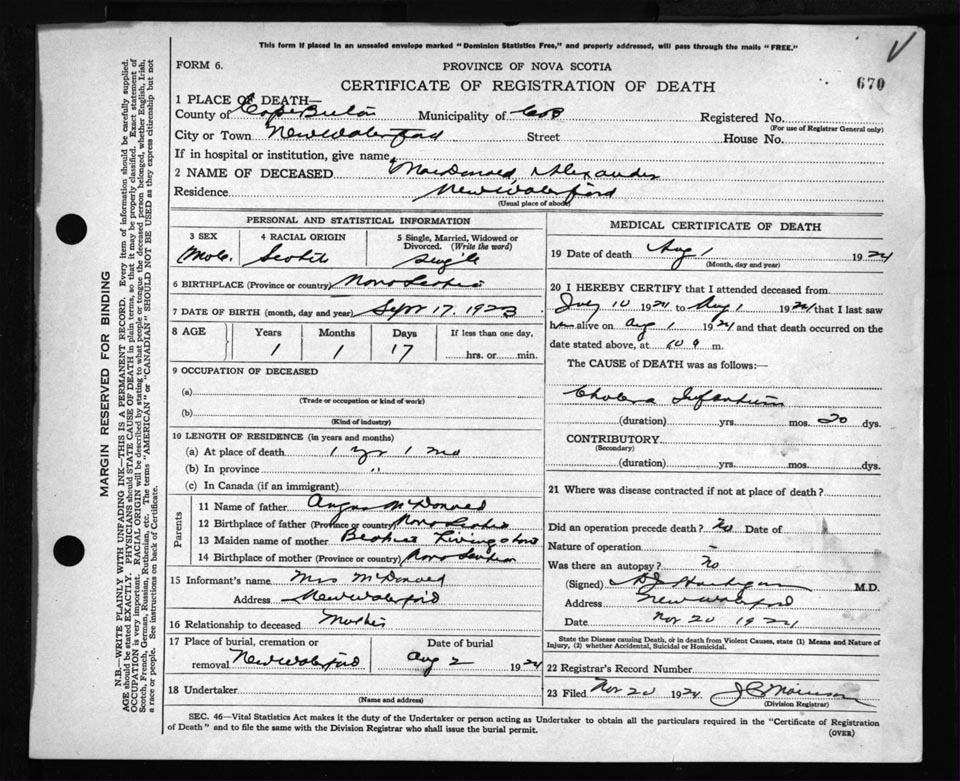 This form if placed in an unsealed envelope marked "Dominion Statistics Free," and properly addressed, will pass through the mails "FREE."
V
FORM 6.
PROVINCE OF NOVA SCOTIA
CERTIFICATE OF REGISTRATION OF DEATH
670
1 PLACE OF DEATH—
County of Cape Breton Municipality of C of B Registered No.
(For use of Registrar General only)
City or Town New Waterford Street House No.
If in hospital or institution, give name
2 NAME OF DECEASED MacDonald, Alexander
Residence New Waterford
(Usual place of abode)
PERSONAL AND STATISTICAL INFORMATION
3 SEX 4 RACIAL ORIGIN 5 Single, Married, Widowed or Divorced. (Write the word)
Male. Scotch Single
6 BIRTHPLACE (Province or country) Nova Scotia
7 DATE OF BIRTH (month, day and year) Sept 17. 1923
8 AGE Years Months Days If less than one day,
1 1 17 hrs. or min.
9 OCCUPATION OF DECEASED
(a)
(Trade or occupation or kind of work)
(b)
(Kind of industry)
10 LENGTH OF RESIDENCE (in years and months)
(a) At place of death 1 yr 1 mo
(b) In province "
(c) In Canada (if an immigrant)
Parents
11 Name of father Angus McDonald
12 Birthplace of father (Province or country) Nova Scotia
13 Maiden name of mother Livingstone
14 Birthplace of mother (Province or country) Nova Scotia
15 Informant's name Mrs McDonald
Address New Waterford
16 Relationship to deceased Mother
17 Place of burial, cremation or removal New Waterford
Date of burial
Aug 2 1924
18 Undertaker
(Name and address)
MEDICAL CERTIFICATE OF DEATH
19 Date of death Aug 1 1924
(Month, day and year)
20 I HEREBY CERTIFY that I attended deceased from
July 10 1924 to Aug 1 1924 that I last saw
him alive on Aug 1 1924 and that death occurred on the
date stated above, at m.
The CAUSE of DEATH was as follows:—
Cholera Infantum
(duration) yrs. mos. 20 dys.
CONTRIBUTORY
(Secondary)
(duration) yrs. mos. dys.
21 Where was disease contracted if not at place of death?
Did an operation precede death? No Date of
Nature of operation -
Was there an autopsy? No
(Signed) M.D.
Address New Waterford
Date Nov 20 1924
State the Disease causing Death, or in death from Violent Causes, state (1) Means and Nature of
Injury, (2) whether Accidental, Suicidal or Homicidal.
22 Registrar's Record Number
23 Filed Nov 20 1924 Morrison
(Division Registrar)
SEC. 46—Vital Statistics Act makes it the duty of the Undertaker or person acting as Undertaker to obtain all the particulars required in the "Certificate of Registration
of Death" and to file the same with the Division Registrar who shall issue the burial permit.
(OVER)
MARGIN RESERVED FOR BINDING
N.B.—WRITE PLAINLY WITH UNFADING INK—THIS IS A PERMANENT RECORD. Every item of information should be carefully supplied.
AGE should be stated EXACTLY. PHYSICIANS should STATE CAUSE OF DEATH in plain terms, so that it may be properly classified. Exact statement of
OCCUPATION is very important. RACIAL ORIGIN will be described by stating to what people or tongue the deceased person belonged, whether English, Irish,
Scotch, French, German, Russian, Ruthenian, etc. The terms "AMERICAN" or "CANADIAN" SHOULD NOT BE USED as they express citizenship but not
a race or people. See instructions on back of Certificate.